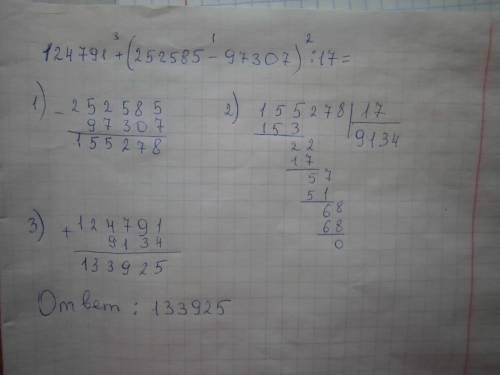 3 1 2
124791+(252585-97307):17=
1) -252585
97307
155278
2) 155278|17
153 9134
22
17
57
51
68
68
0
3) +124791
9134
133925
Ответ: 133925